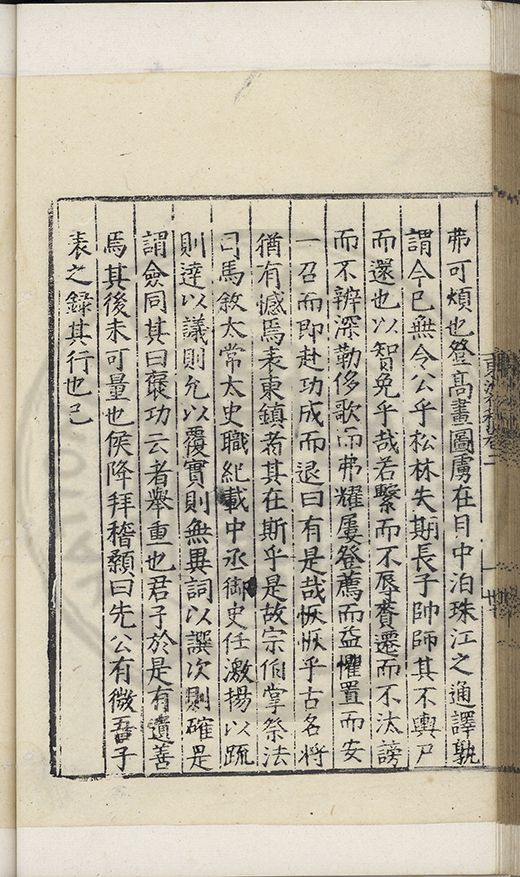 弗可煩也登高畫圖虜在目中泊珠江之通譯孰
謂今已無令公乎松林失期長子帥師其不輿尸
而還也以智免乎哉若繫而不辱賚遷而不汰謗
而不辨深勒侈歌而弗耀屢登薦而益懼置而安
一召而即赴功成而退曰有是哉恢恢乎古名將
猶有憾焉表東鎮者其在斯乎是故宗伯掌祭法
司馬敘太常太史職紀載中丞御史任激揚以䟽
則達以議則允以覆實則無異詞以譔次則確是
謂僉同其曰褒功云者舉重也君子於是有遺善
焉其後未可量也侯降拜稽顙曰先公有微吾子
表之錄其行也已